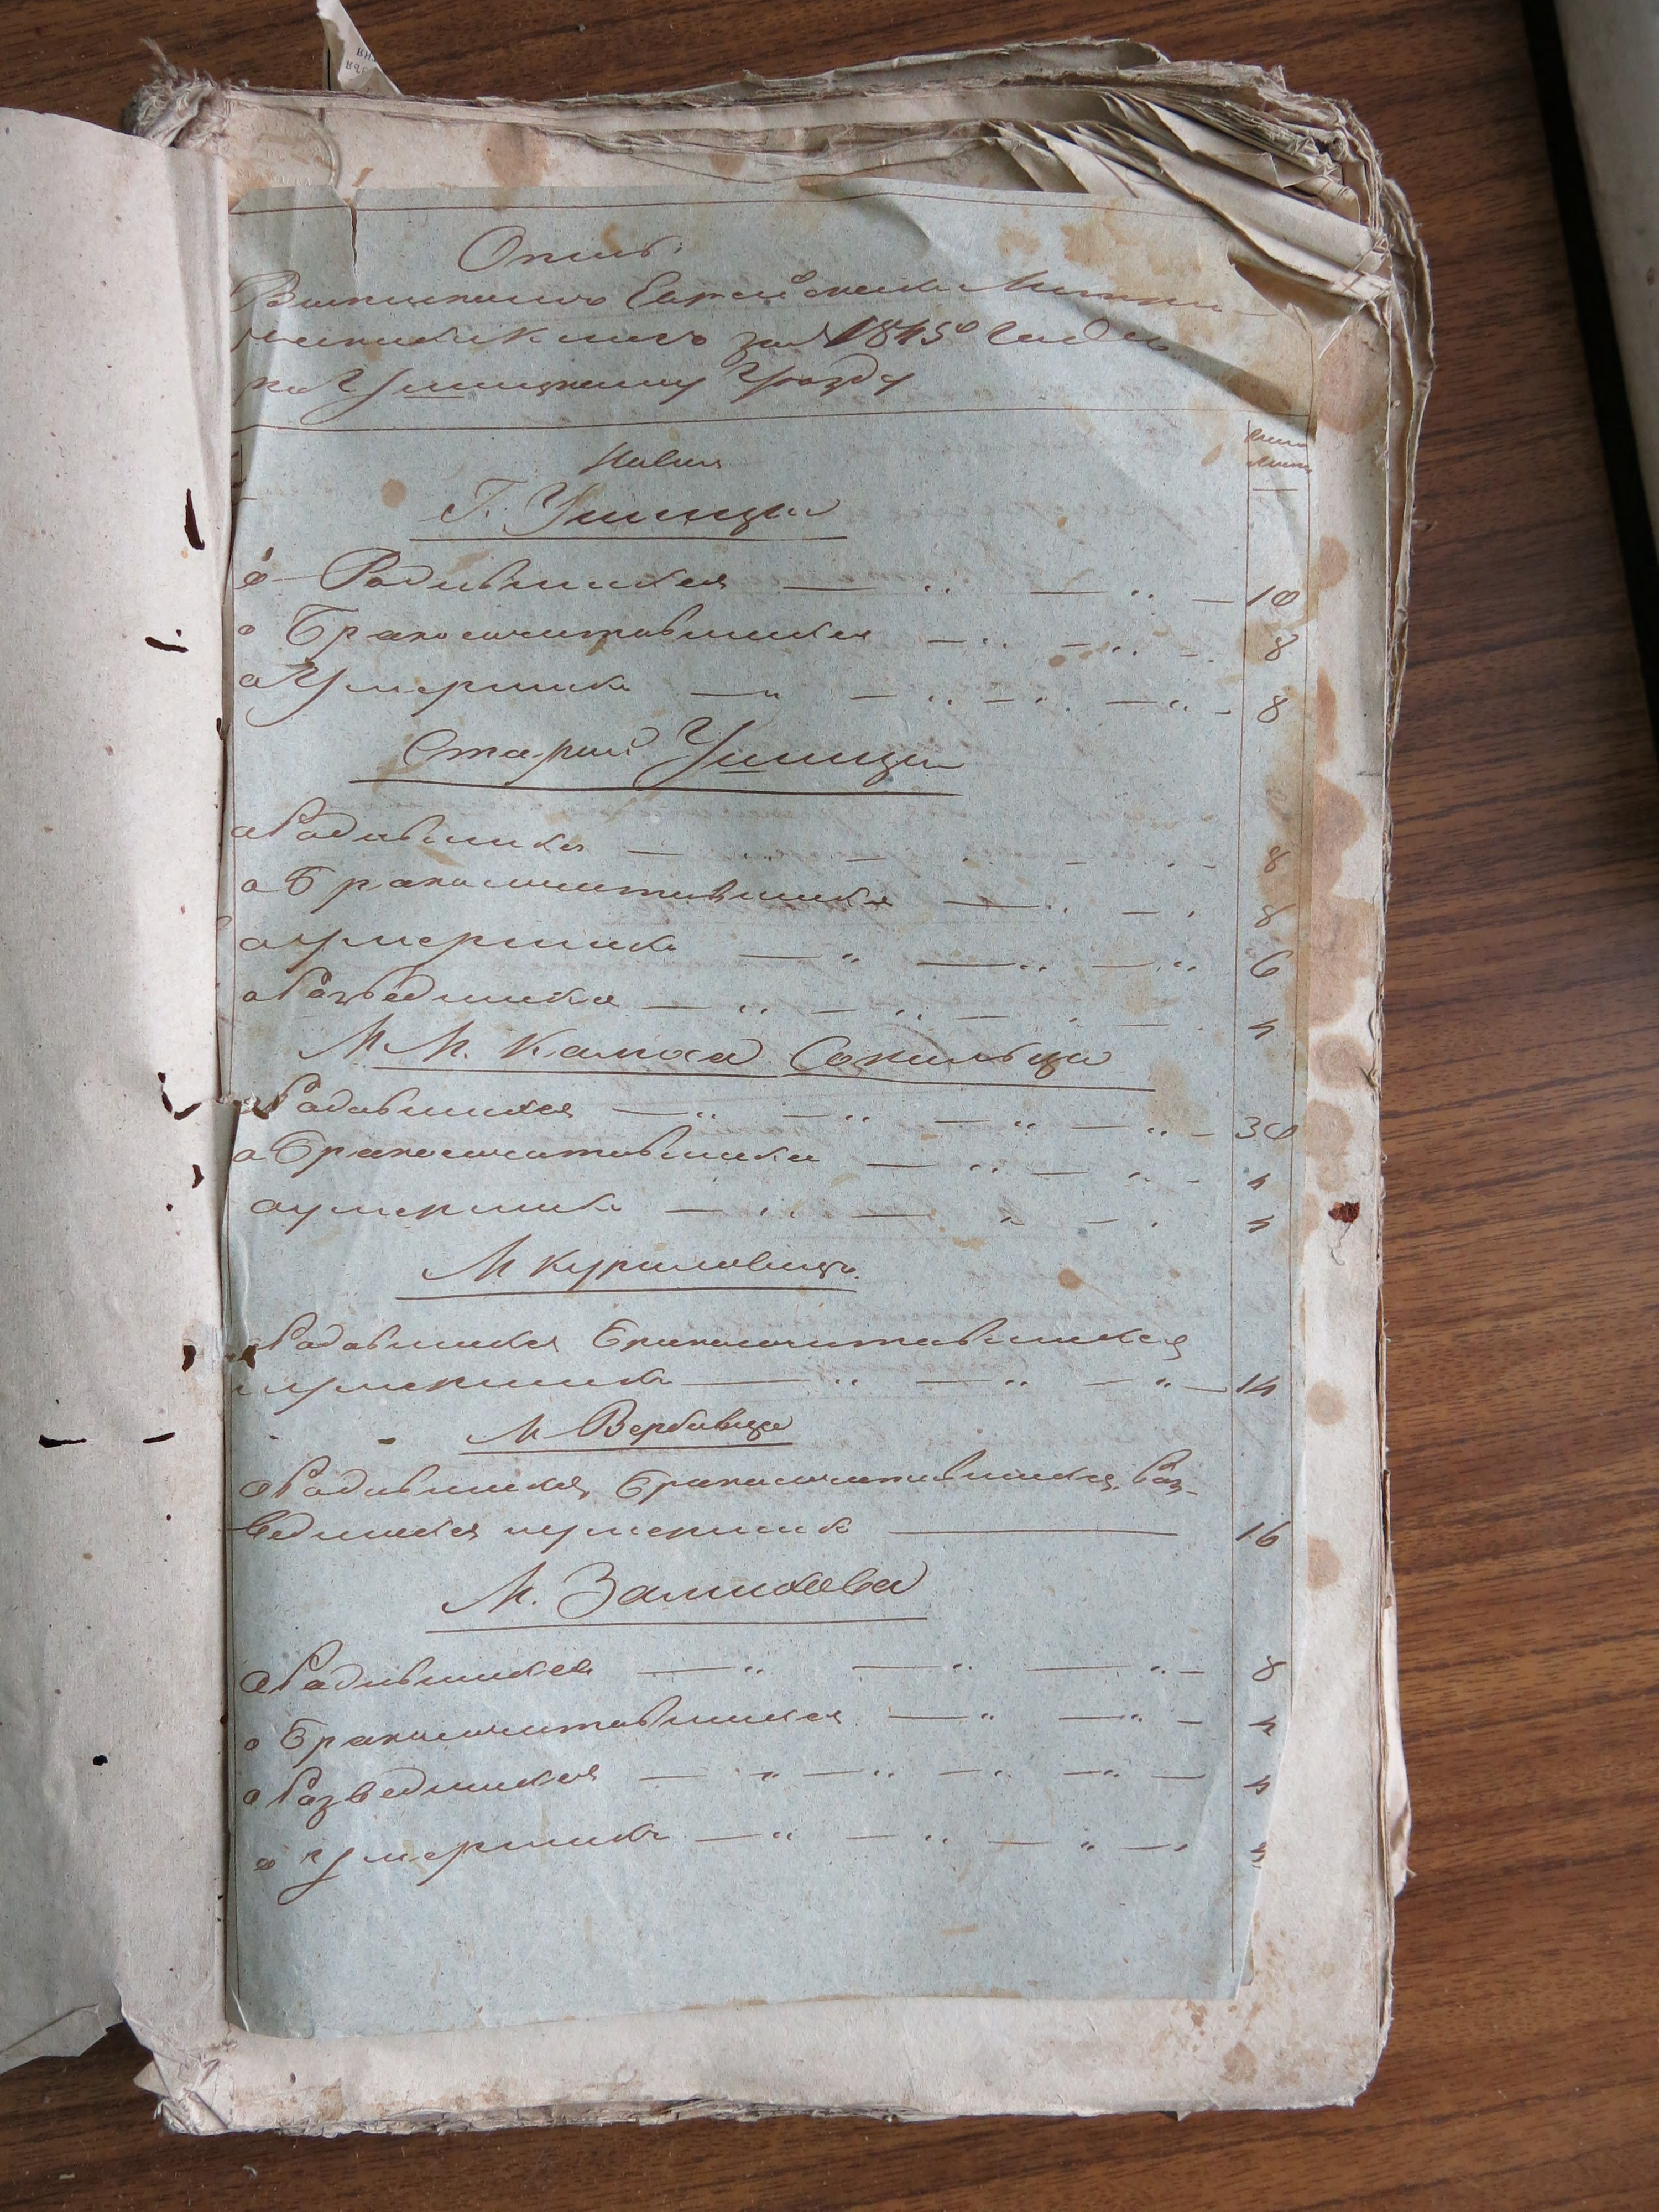 Опись
Выписканъ Еврейскихъ Метри-
ческихъ Книгъ за 1845й Годъ
по Ушицкому Уезду
число
листъ
Новая
Г. Ушица
о Родившихся 10
о Бракосочитавшихся 8
о Умершихъ 8
Старая Ушица
о Родившихся 8
о Бракосочитавшихся 8
о умершихъ 6
о Разведшихся 4
М М. Калюса Сокильца
о Родившихся 30
о Бракосочитавшихся 4
о умершихъ 4
М Куриловцы
о Родившихся Бракосочитавшихся
и умершихъ 14
М Вербовца
о Родившихся, Бракосочитавшихся, Раз-
ведшихся и умершихъ 16
М. Замихова
о Родившихся 8
о Бракосочитавшихся 4
о Разведшихся 4
о Умершихъ 4